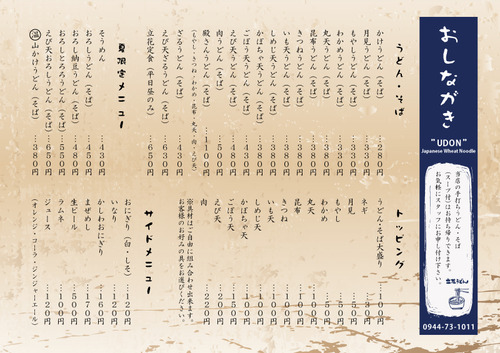 おしながき
"UDON"
Japanese Wheat Noodle
当店の手打ちうどん・そば
(スープ付)はお持ち帰りできます。
お気軽にスタッフにお申し付け下さい。
立花うどん
0944-73-1011
うどん・そば
かけうどん(そば)…280円
月見うどん(そば)…330円
もやしうどん(そば)…330円
わかめうどん(そば)…330円
丸天うどん(そば)…380円
昆布うどん(そば)…380円
きつねうどん(そば)…380円
いも天うどん(そば)…380円
しめじ天うどん(そば)…380円
かぼちゃ天うどん(そば)…380円
ごぼう天うどん(そば)
えび天うどん(そば)
肉うどん(そば)
殿さんうどん(そば)…1100円
(もやし・きつね・わかめ・昆布・丸天・肉・えび天)
ざるうどん(そば)…450円
えび天ざるうどん(そば)…630円
立花定食(平日昼のみ)…650円
夏限定メニュー
そうめん…430円
おろしうどん(そば)…450円
おろし納豆うどん(そば)
おろしとろろうどん(そば)
えび天おろしうどん(そば)…650円
温山かけうどん(そば)…380円
トッピング
うどん・そば大盛り…100円
ネギ
月見
もやし
わかめ
丸天
昆布
きつね
いも天
しめじ天
かぼちゃ天
ごぼう天
えび天
肉…220円
※具材はご自由に組み合わせ出来ます。
お客様のお好みの具をお選びください。
サイドメニュー
おにぎり(白・しそ)…120円
いなり…120円
かしわおにぎり…160円
まぜめし…170円
生ビール…500円
ラムネ…100円
ジュース…120円
(オレンジ・コーラ・ジンジャーエール)